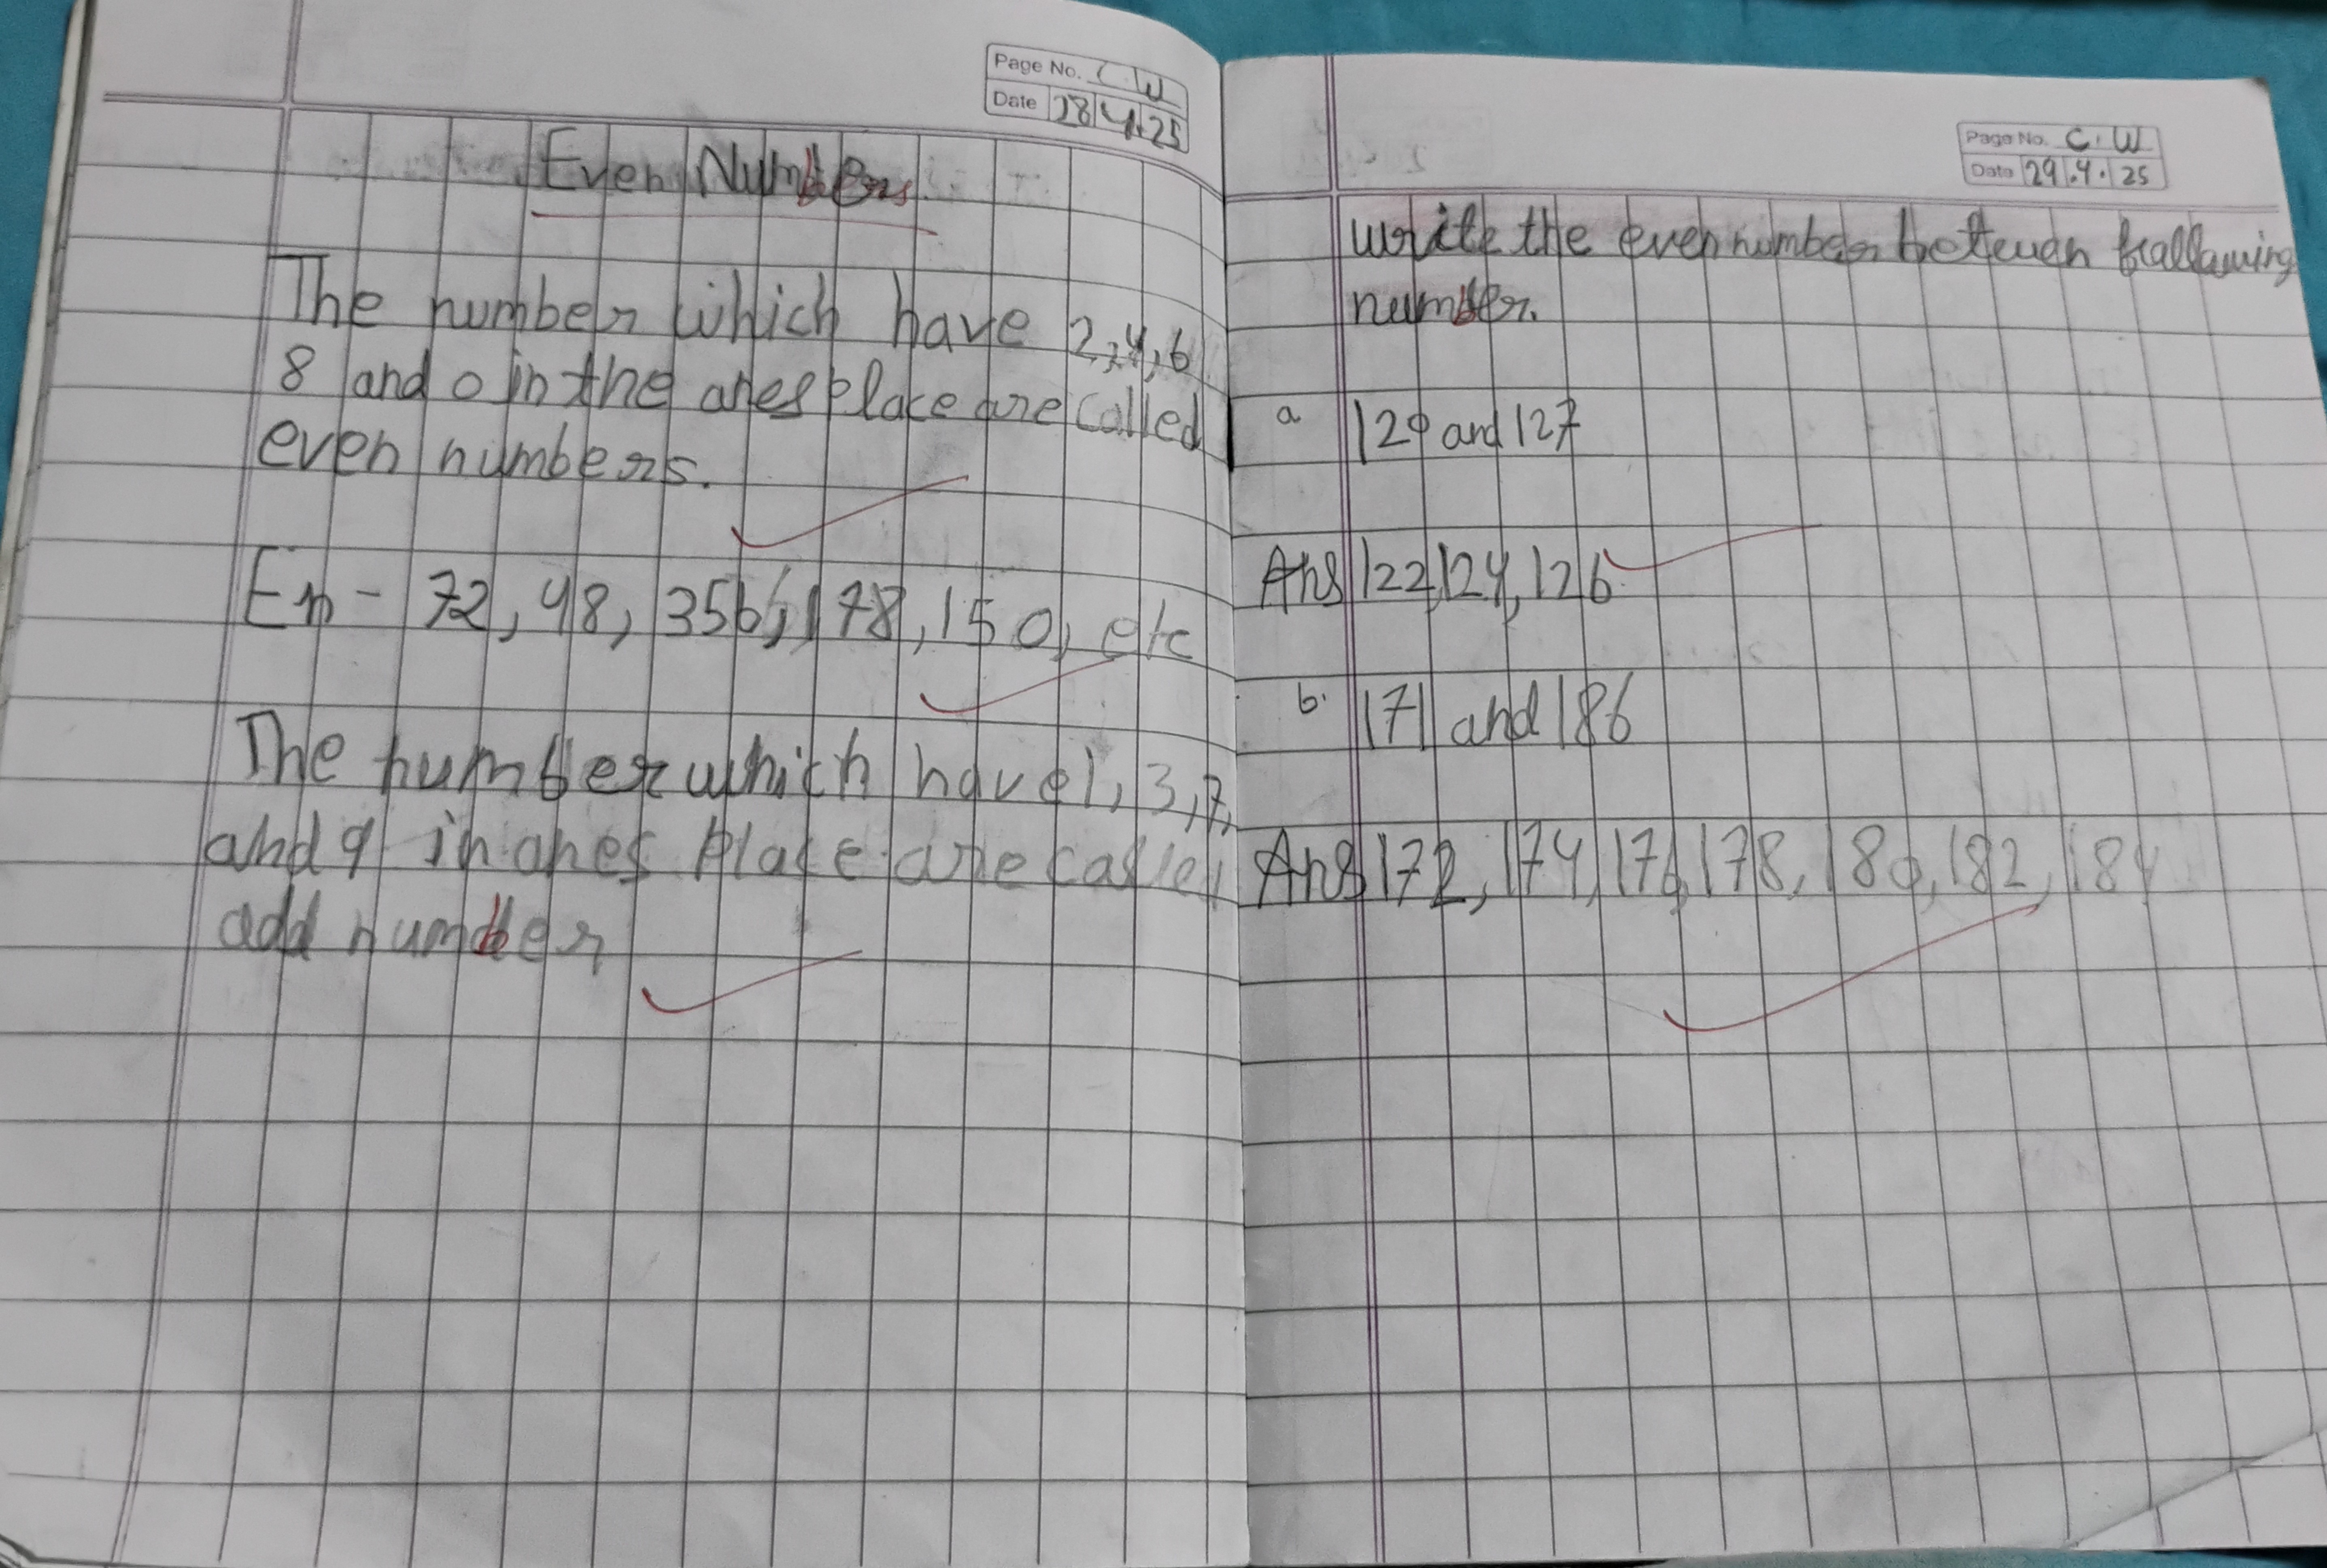 Page No. C.W
Date 28 4.25
Even Numbers
The number which have 2,4,6
8 and 0 in the ones place are called
even numbers.
En - 72, 48, 356, 178, 150, etc
The number which have 1, 3, 7,
and 9 in ones place are called
add number
Page No. C.W
Date 29.4.25
write the even number between following
number.
a 120 and 127
Ans 122, 124, 126
b. 171 and 186
Ans 172, 174, 176, 178, 180, 182, 184